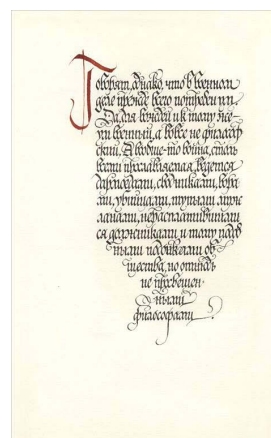 Говорят, однако, что в военном
деле прежде всего потребен ум.
Да, для вождей и к тому же
ум военный, а вовсе не философ
ский. А вообще-то война, столь
всеми прославляемая, ведется
дармоедами, сводниками, вора
ми, убийцами, тупыми муж
ланами, нерасплатившими
ся должниками и тому подоб
ными подонками об
щества, но отнюдь
не просвещен-
ными
философами